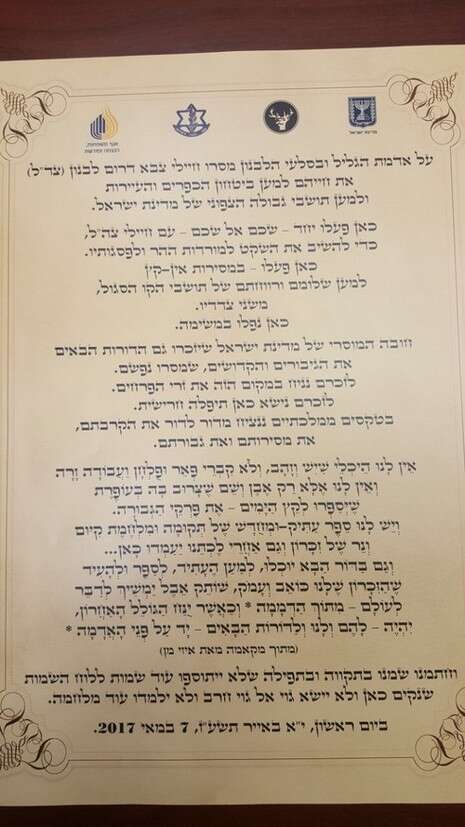 מדינת ישראל
אגף משפחות,
הנצחה ומורשת
על אדמת הגליל ובסלעי הלבנון מסרו חיילי צבא דרום לבנון (צד"ל)
את חייהם למען ביטחון הכפרים והעיירות
ולמען תושבי גבולה הצפוני של מדינת ישראל.
כאן פעלו יחד – שכם אל שכם – עם חיילי צה"ל,
כדי להשיב את השקט למורדות ההר ולפסגותיו.
כאן פעלו – במסירות אין-קץ
למען שלומם ורווחתם של תושבי הקו הסגול,
משני צדדיו.
כאן נפלו במשימה.
חובה המוסרי של מדינת ישראל שיזכרו גם הדורות הבאים
את הגיבורים והקדושים, שמסרו נפשם.
לזכרם נניח במקום הזה את זרי הפרחים.
לזכרם נישא כאן תיפלה חרישית.
בטקסים ממלכתיים ננציח מדור לדור את הקרבתם,
את מסירותם ואת גבורתם.
אֵין לָנוּ הֵיכְלֵי שַׁיִשׁ וְזָהָב, וְלֹא קִבְרֵי פְּאֵר וּפֻלְחָן וַעֲבוֹדָה זָרָה
וְאֵין לָנוּ אֶלָּא רַק אֶבֶן וְשֵׁם שֶׁצָּרוּב בָּהּ בְּעוֹפֶרֶת
שֶׁיְּסַפְּרוּ לְקֵץ הַיָּמִים – אֶת פִּרְקֵי הַגְּבוּרָה.
וְיֵשׁ לָנוּ סֵפֶר עַתִּיק-וּמְחֻדָּשׁ שֶׁל תְּקוּמָה וּמִלְחֶמֶת קִיּוּם
וְנֵר שֶׁל זִכָּרוֹן וְגַם אַחֲרֵי לֶכְתֵּנוּ יַעַמְדוּ כָּאן...
וְגַם בַּדּוֹר הַבָּא יוּכְלוּ, לְמַעַן הֶעָתִיד, לְסַפֵּר וּלְהָעִיד
שֶׁהַזִּכָּרוֹן שֶׁלָּנוּ כּוֹאֵב וְעָמֹק, שׁוֹתֵק אֲבָל יַמְשִׁיךְ לְדַבֵּר
לְעוֹלָם – מִתּוֹךְ הַדְּמָמָה * וְכַאֲשֶׁר יֻנַּח הַגּוֹלָל הָאַחֲרוֹן,
יִהְיֶה – לָהֶם וְלָנוּ וְלַדּוֹרוֹת הַבָּאִים – יָד עַל פְּנֵי הָאֲדָמָה *
(מתוך מקאמה מאת איזי מן)
וחתמנו שמנו בתקווה ובתפילה שלא ייתוספו עוד שמות ללוח השמות
שנקים כאן ולא יישא גוי אל גוי חרב ולא ילמדו עוד מלחמה.
ביום ראשון, י"א באייר תשע"ז, 7 במאי 2017.